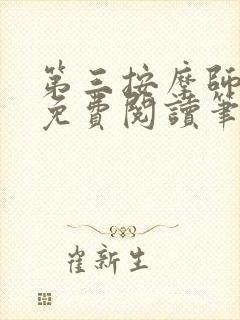 第三按摩師
免費閱讀筆
崔新生